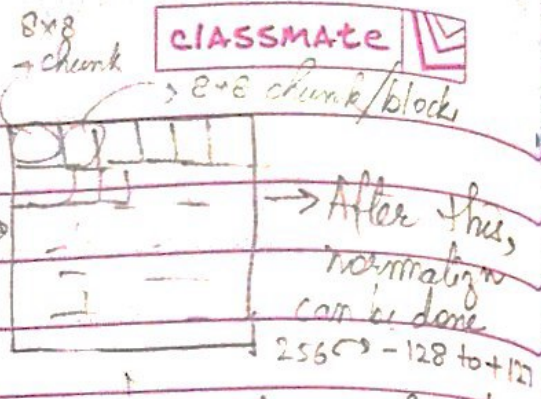 8*8
→ chunk
classmate
→ 8*8 chunk/block
→ After this,
normalizn
can be done
256 → -128 to +127